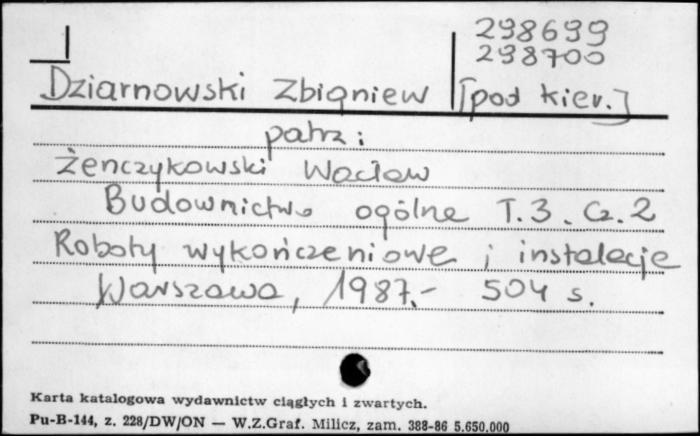 298699
298700
Dziarnowski Zbigniew [pod kier.]
patrz:
Żenczykowski Wacław
Budownictwo ogólne T.3. Cz.2
Roboty wykończeniowe i instalacje
Warszawa, 1987.- 504 s.
Karta katalogowa wydawnictw ciągłych i zwartych.
Pu-B-144, z. 228/DW/ON — W.Z.Graf. Milicz, zam. 388-86 5.650.000